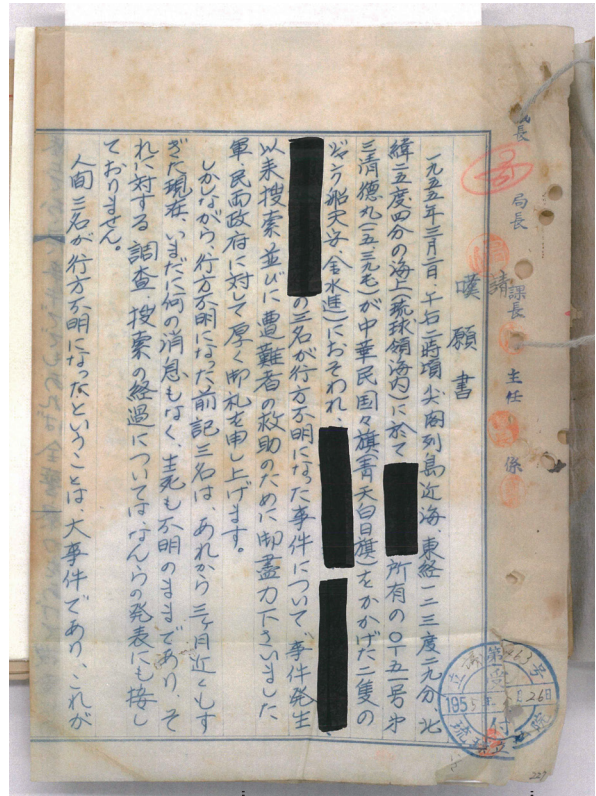 局長
課長
主任
係
請
嘆願書
一九五五年三月二日、午后二時頃、尖閣列島近海、東経一二三度二九分、北
緯二五度四分の海上(琉球領海内)に於て
所有の〇十五一号 オ
三清徳丸(一五、三九屯)が中華民国々旗(青天白日旗)をかかげた二隻の
ジャンク船
(金水進)におそわれ、
の三名が行方不明になった事件について、事件発生
以来捜索並びに遭難者の救助のために御盡力下さいました
軍民両政府に対して厚く御礼を申し上げます。
しかしながら、行方不明になった前記三名は、あれから三ヶ月近くもす
ぎた現在、いまだに何の消息もなく、生死も不明のままであり、そ
れに対する調査、捜索の経過についてはなんらの発表にも接し
ておりません。
人間三名が行方不明になったということは、大事件であり、これが
第
号
受付
195
26日
琉球